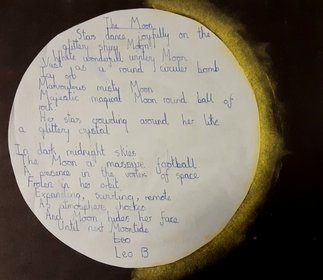 The Moon
Stars dance joyfully on the
glittery shiny Moon!
White wonderfull wintery Moon
Just as a round circular bomb
Icy orb
Marvoulous misty Moon
Majestic magical Moon round ball of
rock!
Her stars crowding around her like
a glittery crystal
In dark midnight skies
The Moon a massive football
A presence in the vortex of space
Frozen in her orbit
Expanding, swirling, remote
As atmosphere chockes
And Moon hides her face
Until next Moontide
Leo
Leo B